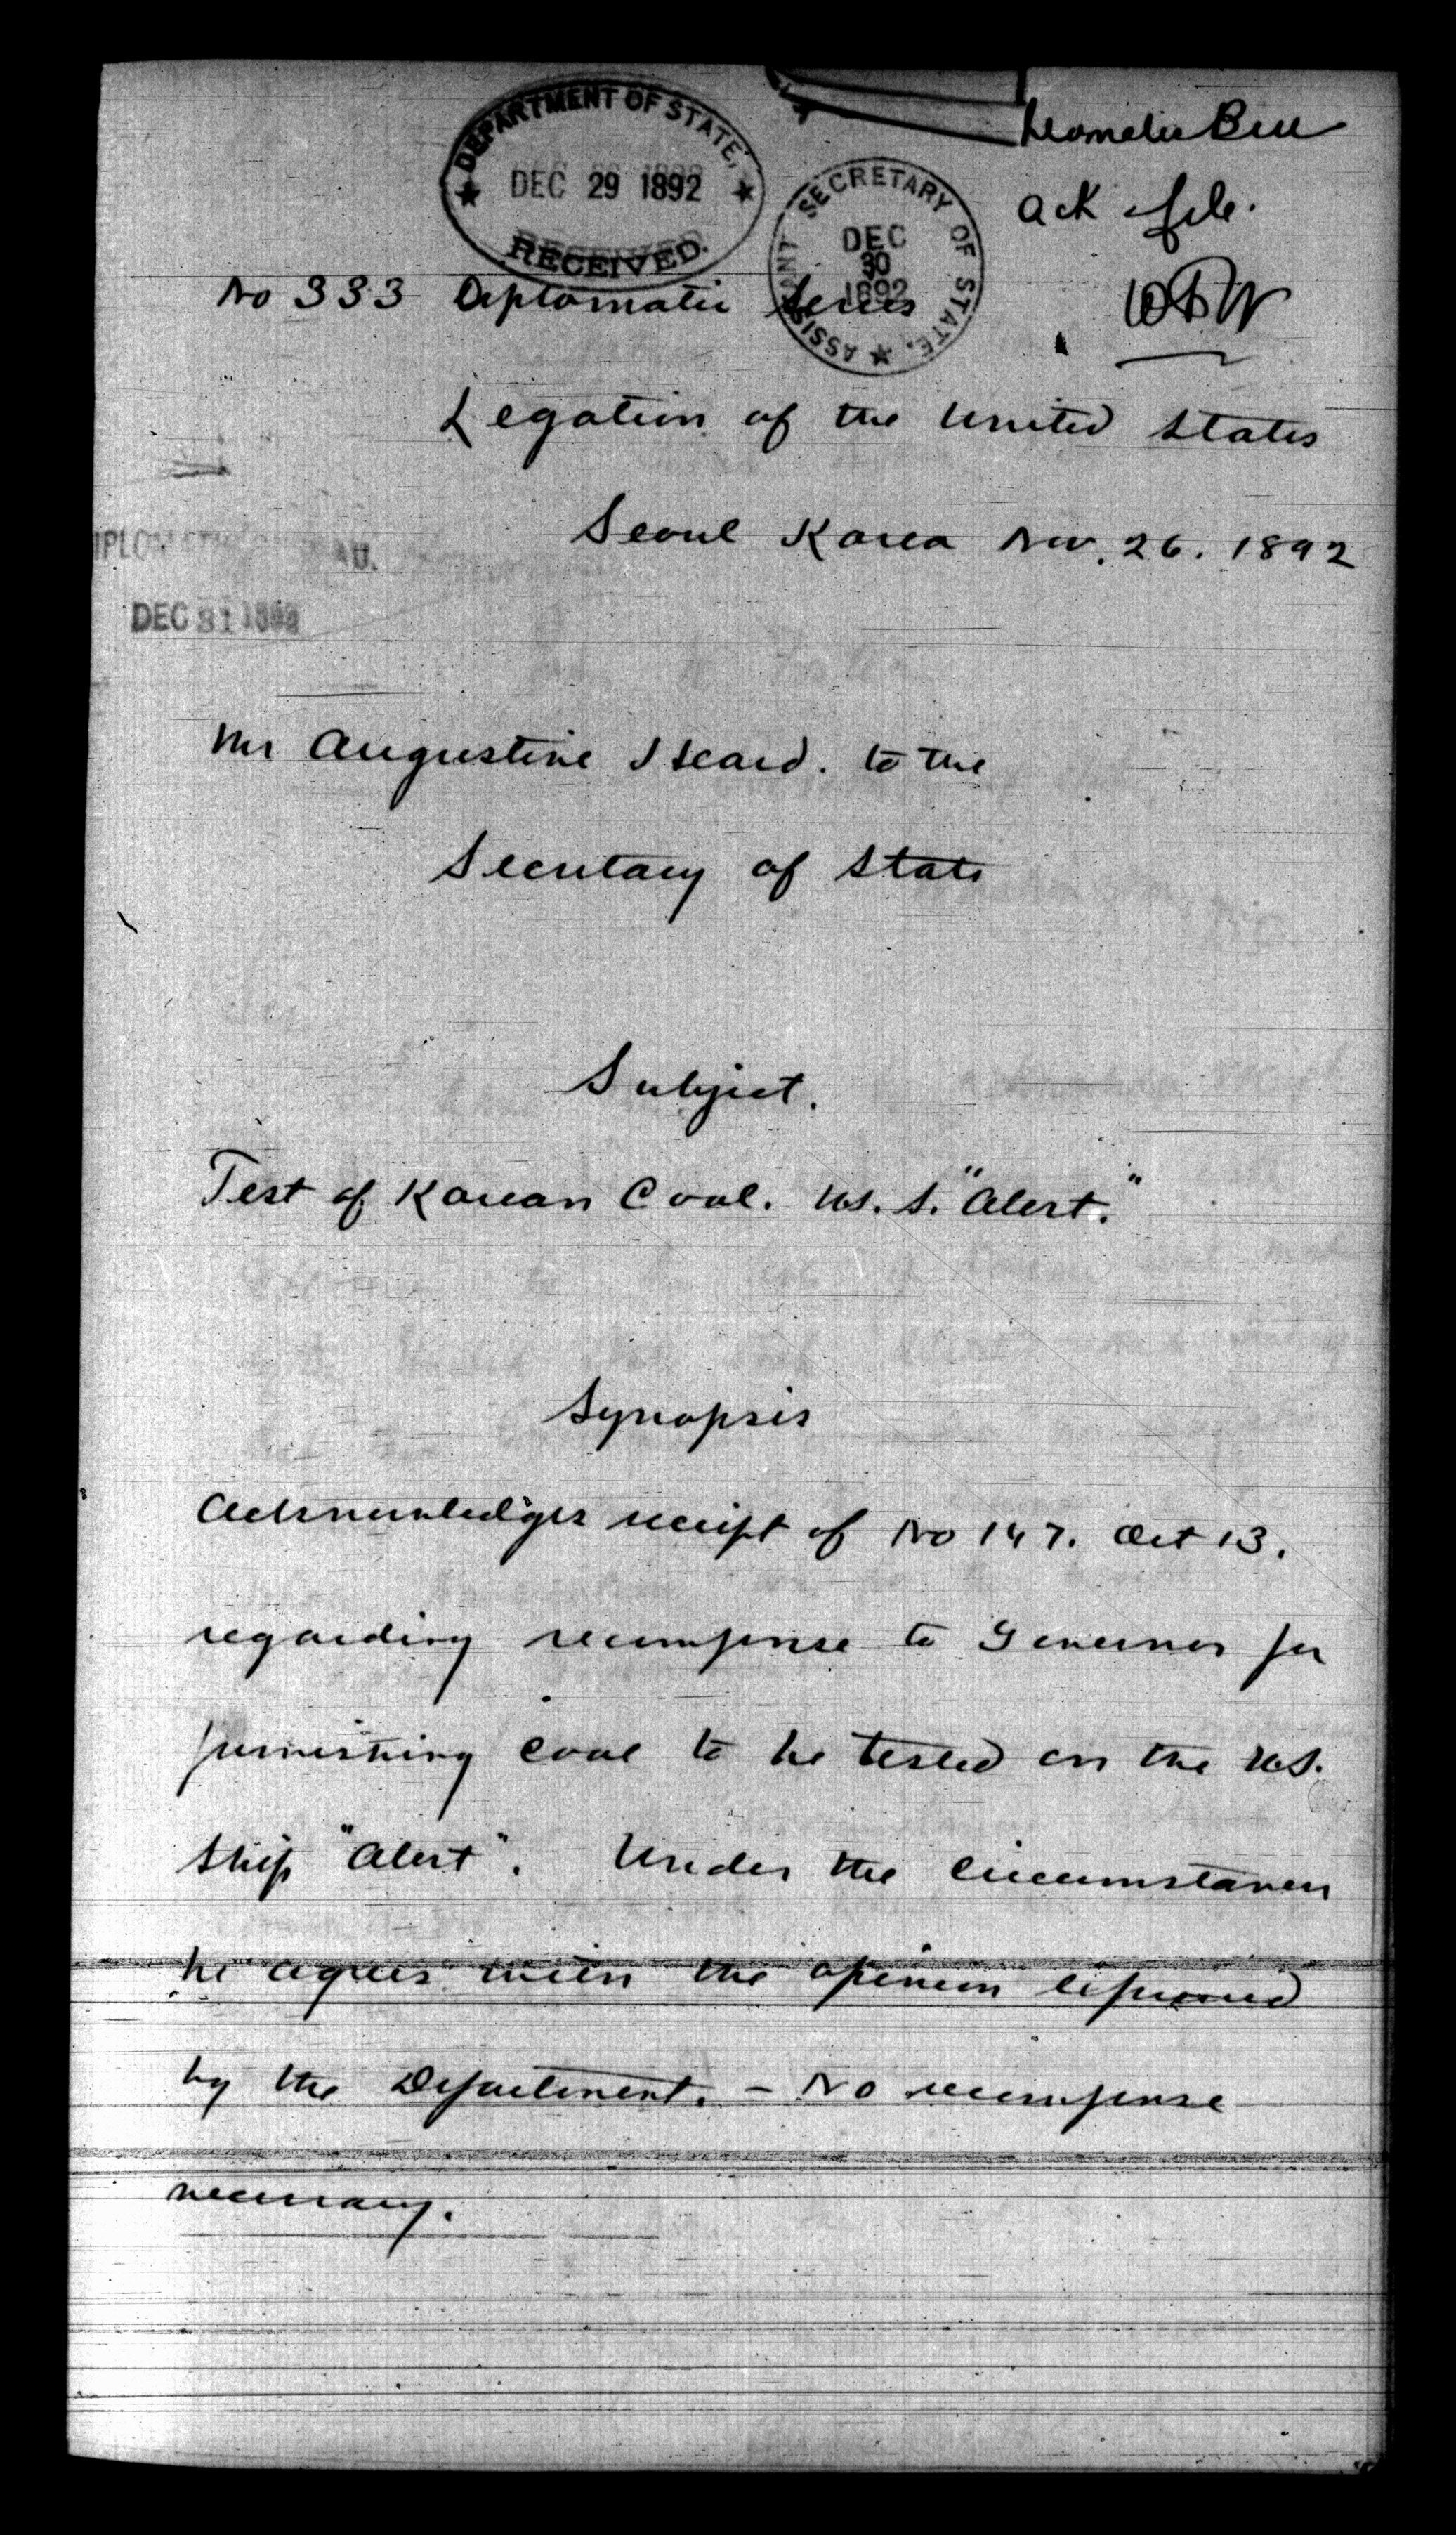 DEPARTMENT OF STATE,
DEC 29 1892
RECEIVED.
ASSISTANT SECRETARY OF STATE.
DEC
30
1892
Ack & file.
No 333 Diplomatic Series
Legation of the United States
Seoul Korea Nov. 26. 1892
DEC 31
Mr Augustine Heard. to the
Secretary of State
Subject.
Test of Korean Coal. U.S.S. "Alert."
Synopsis
Acknowledges receipt of No 147. Oct 13.
regarding recompense to Governor for
furnishing coal to be tested on the U.S.
Ship "Alert". Under the circumstances
he agrees with the opinion expressed
by the Department. - No recompense
necessary.